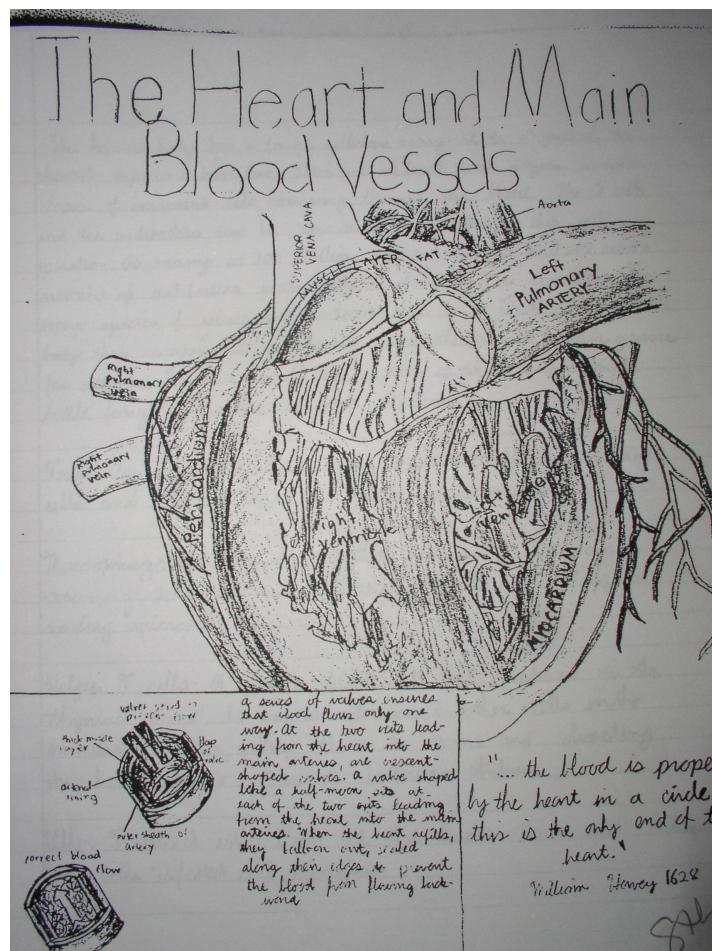 The Heart and Main
Blood Vessels
Aorta
SUPERIOR
VENA CAVA
MUSCLE LAYER
FAT
Left
Pulmonary
ARTERY
Right
pulmonary
vein
Right
Pulmonary
vein
Pericardium
right
ventricle
Left
ventricle
MYOCARDIUM
flow
thick muscle
layer
flap
of
valve
arterial
lining
outer sheath of
artery
correct blood
flow
a series of valves ensures
that blood flows only one
way. At the two exits lead-
ing from the heart into the
main arteries, are crescent-
shaped valves. A valve shaped
like a half-moon sits at
each of the two exits leading
from the heart into the main
arteries. When the heart refills,
they balloon out, sealed
along their edges to prevent
the blood from flowing back-
ward
"... the blood is prope
by the heart in a circle
this is the only end of t
heart."
William Harvey 1628